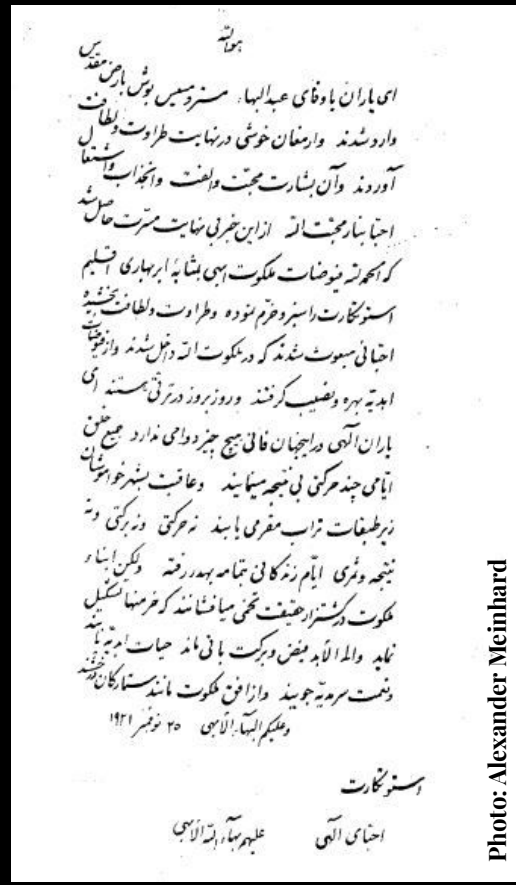 هوالله
ای یاران باوفای عبدالبهاء مستر و مسیس بوش بارض مقدس
وارد شدند وارمغان خوشی درنهایت طراوت ولطافت
آوردند وآن بشارت محبّت والفت وانجذاب واشتعال
احبا بنار محبّت الله ازاین خبر بی نهایت مسرّت حاصل شد
که الحمدلله فیوضات ملکوت ابهی بمثابهٔ ابر بهاری اقلیم
استوتکارت را سبز وخرّم نموده وطراوت ولطافت بخشیده
احبائی مبعوث شدند که درملکوت الله داخل شدند واز فیوضات
ابدیّه بهره ونصیب گرفتند وروز بروز درترقّی هستند ای
یاران الهی دراینجهان فانی هیچ چیز دوامی ندارد جمیع خلق
ایّامی چند حرکتی بی نتیجه مینمایند وعاقبت بشهر خاموشان
زیر طبقات تراب مقرّی یابند نه حرکتی ونه برکتی ونه
نتیجه وثمری ایّام زندگانی بتمامه بهدر رفته ولکن ابناء
ملکوت درکشتزار حقیقت تخمی میافشانند که خرمنها تشکیل
نماید والی الأبد فیض وبرکت باقی ماند حیات ابدیّه یابند
ونعمت سرمدیّه جویند واز افق ملکوت مانند ستارگان درخشند
وعلیکم البهاء الأبهی ۲۵ نوفمبر ۱۹۲۱
استوتکارت
احبّای الهی علیهم بهاء الله الأبهی
Photo: Alexander Meinhard